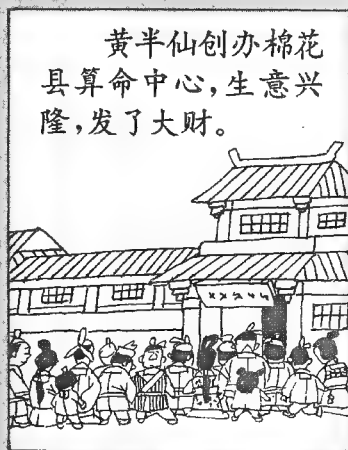 黄半仙创办棉花
县算命中心，生意兴
隆，发了大财。